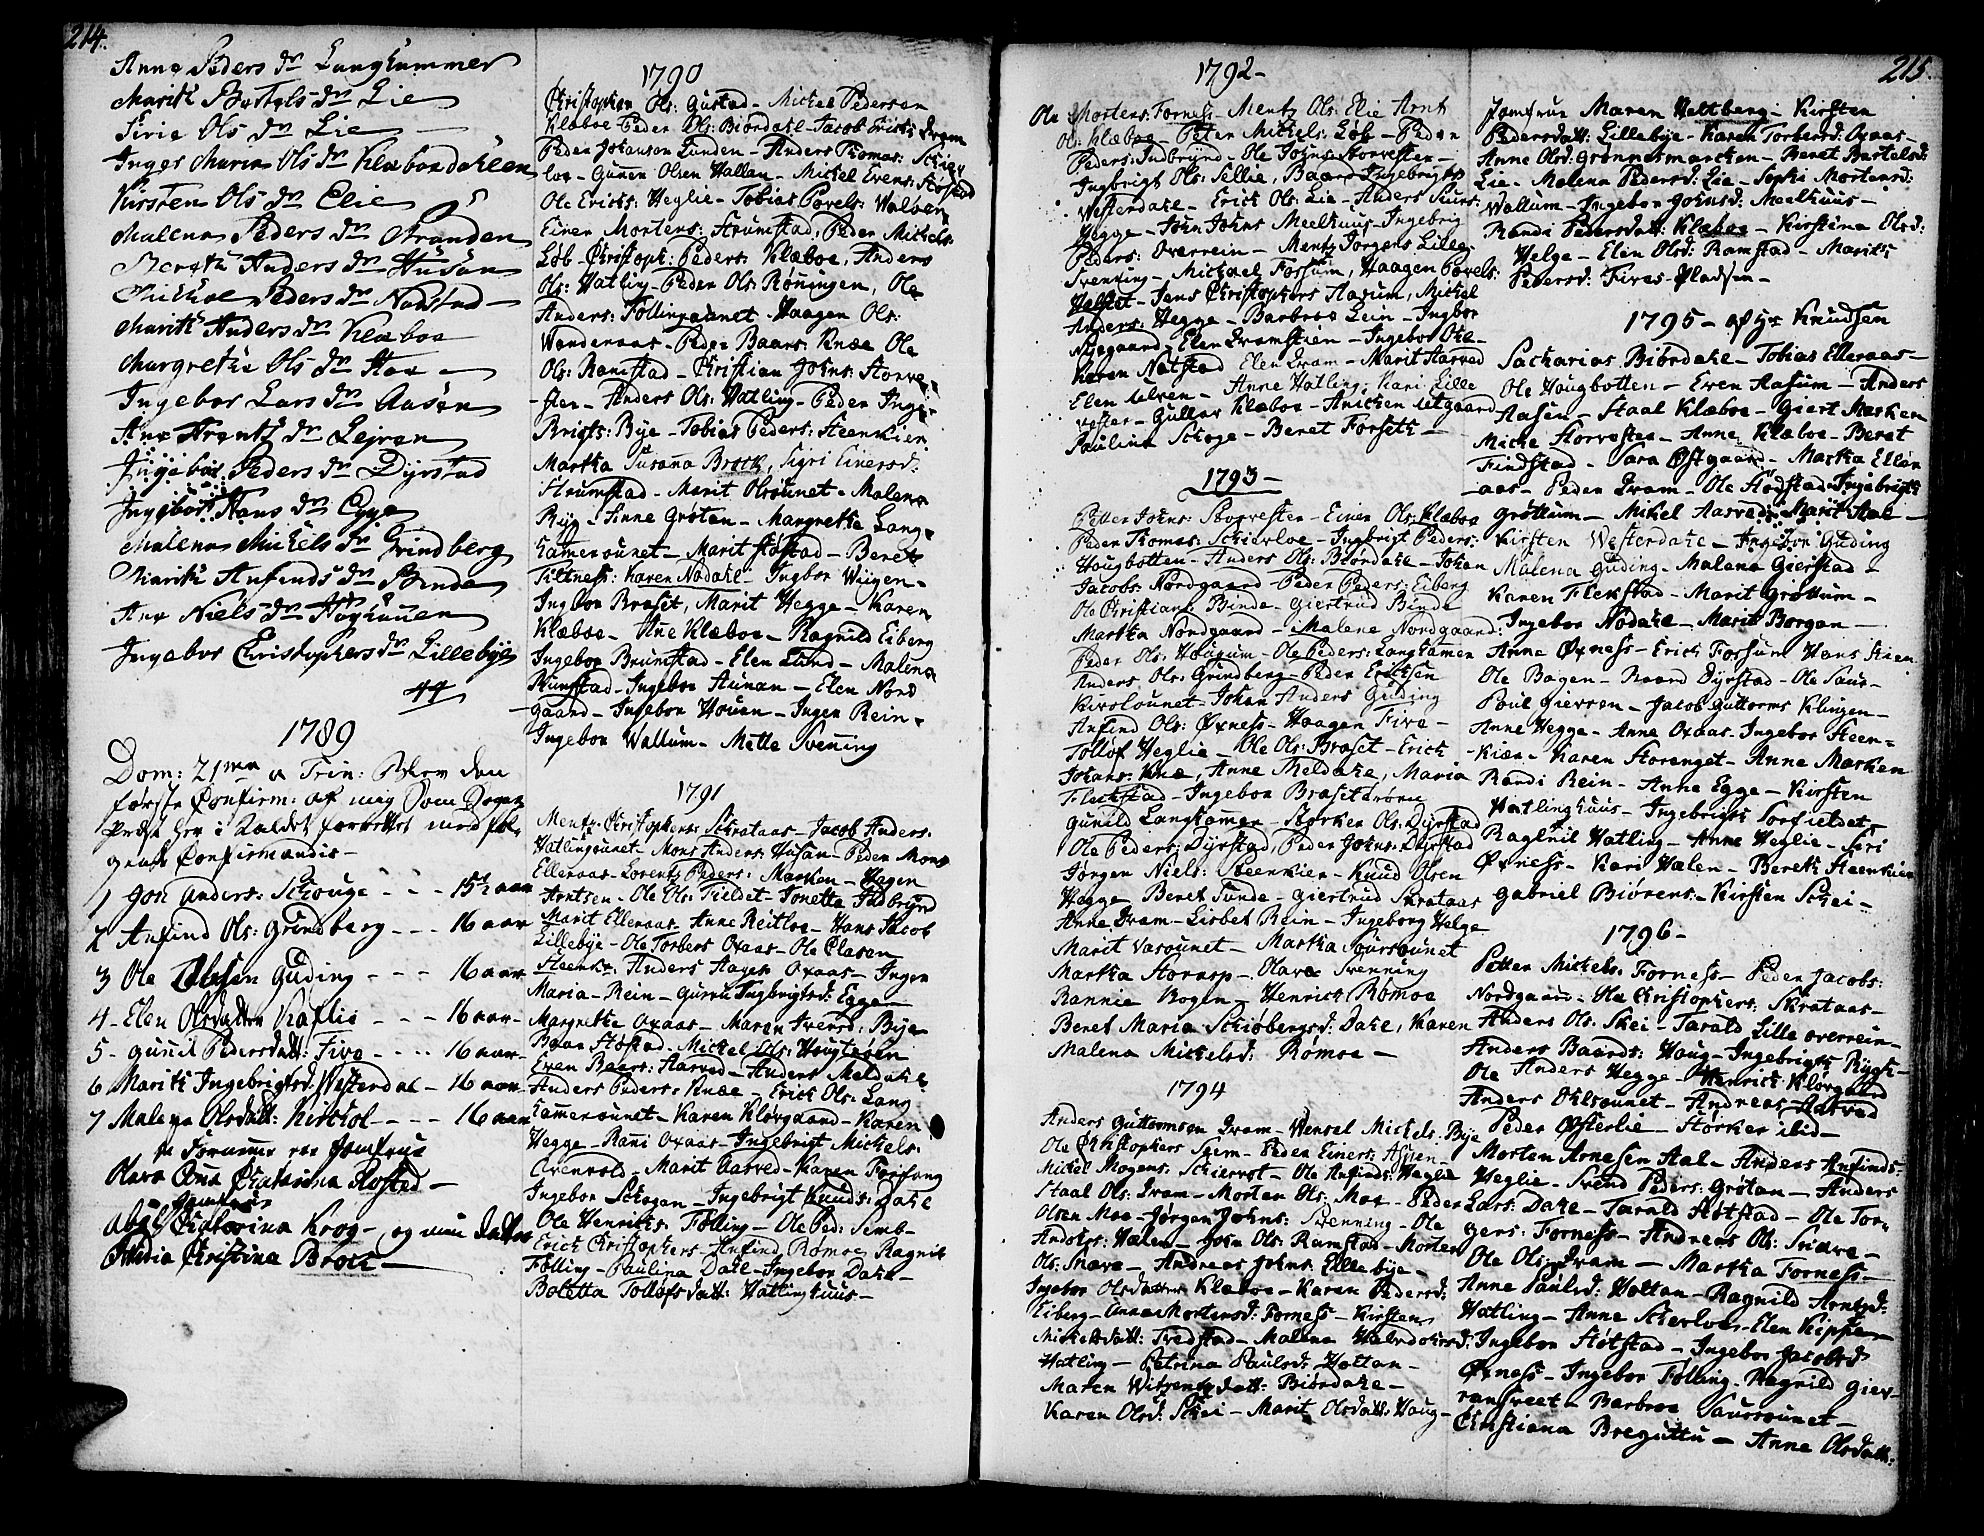 214.
Anne Peders dr Langkammer
Marith Bertels dr Lie
Sirie Ols dr Lie
Inger Maria Ols dr Klæboedahlen
Kirsten Ols dr Elie
Malena Peders dr Stranden
Bereth Anders dr Husan
Peders dr Nødstad
Marith Anders dr Klæboe
Margrethe Ols dr Hov
Ingebor Lars dr Aasen
Ane Arents dr Lejren
Ingebor Peders dr Dyrstad
Ingebor Hans dr Egge
Malena Michels dr Grindberg
Marith Anfinds dr Binde
Ane Niels dr Høghouen
Ingebor Christophers dr Lillebye
44
1789
Dom: 21men a Trin: Blev den
første Confirm: af mig Som Sogne
Præst her i Kaldet forrettet med føl-
gende Confirmandis-
1 Jon Anders: Schouge - - - 15½ aar
2 Anfind Ols: Grindberg - - - 16 aar
3 Ole Olsen Guding - - - 16 aar
4 Elen Olsdatter Kaflie - - - 16 aar
5 Gunil Pedersdatt: Five - - - 16 aar
6 Marith Ingebrigtsd: Westerdal - 16 aar
7 Malena Olsdatt: Kirkhol - - - 16 aar
Jomfrue
Olava Ana Catarina Rostad -
Jomfrue
Abel Catarina Krog - og min datter
Maria Christina Brock -
1790
Christopher Ols: Gustad - Michel Pedersen
Klæboe Peder Ols: Biørdahl - Jacob Frichs Dram
Peder Johansen Lunden - Anders Thomas: Schier
loe - Gunen Olsen Hallan - Michel Evens: Høstad
Ole Erichs: Heglie - Tobias Povels: Waløen
Einer Mortens: Strumstad, Peder Michels:
Løb - Christoph: Peders: Klæboe, Anders
Ols: Hatling - Peder Ols: Røningen, Ole
Anders: Føllingaunet - Haagen Ols:
Wonderaas - Peder Baars: Knæe Ole
Ols: Ramstad - Christian Johns: Storve-
sten - Anders Ols: Hatling - Peder Inge-
Brigts: Bye - Tobias Peders: Steenkier
Martha Susana Brock, Sigri Einersd:
Strumstad - Marit Olsounet - Malena
Ryg - Anne Grøtan - Margrethe Lang-
kamerounet - Marit Støstad - Beret
Tiltness: Karen Nodahl - Ingbor Wiigen -
Ingebor Braset, Marit Hegge - Karen
Klæboe - Ane Klæboe - Ragnild Eiberg
Ingebor Brumstad - Elen Lund - Malena
Rumstad - Ingebor Aunan - Elen Nord
gaard - Ingebor Houen - Inger Rein -
Ingebor Wallum - Mette Svenning
1791
Mentz Christophers: Skrataas - Jacob Anders:
Hatlingounet - Mons Anders: Husan - Peder Mons
Elleraas - Lorentz Peders: Marken - Hagen
Arntsen - Ole Ols: Fieldet - Jonetta Indbrÿn
Marit Elleraas - Anne Reitloe - Hans Jacob
Lillebye - Ole Torbers Oxaas - Ole Clasen
Anders Aagen Oxaas - Inger
Maria - Rein - Guru Ingbrigtsd: Egge -
Margrethe Oxaas - Maren Iversd: Bye
Baar Støstad - Michel Ols: Hougtrøen
Even Baars: Aasved - Anders Meldahl -
Anders Peders: Knæe - Erich Ols: Lang
kamerounet - Karen Klørgaard - Karen
Hegge - Rani Oxaas - Ingebrigt Michels:
Marit Aasved - Karen Forfang
Ingebor Schagan - Ingebrigt Knuds: Dahl
Ole Henrichs: Følling - Ole Ped: Semb -
Erich Christophers - Anfind Rømoe Ragnil
Følling - Paulina Dahl - Ingebor Dahl -
Boletta Tolløfs datt: Hatlinghuus -
1792 -
Ole Mortens: Forness - Mentz Ols: Elie Arnt
Ols: Klæboe - Peter Michels: Løb - Peder
Peders: Indbrÿnd - Ole Johns Storvesten -
Ingbrigt Ols: Sellie, Baar Ingebrigts
Westerdahl - Erich Ols: Lie - Anders Siurs:
Hegge - John Johns Meelhuus - Ingebrig
Peders: Overrein - Mentz Jørgens Lille
Svenning - Michael Fossum, Haagen Povels:
Helstet - Jens Christophers Aasum, Michel
Anders: Hegge - Barbroe Lein - Ingbor
Nygaard - Elen Dramstien - Ingebor Ole -
Karen Natstad Elen Dram - Marit Aasved
Elen Ulven - Anne Hatling, Kari Lille
vesten - Gullav Klæboe - Anichen Utgaard
Paulina Schoge - Beret Forseth -
1793 -
Petter Johns: Storvesten - Einer Ols: Klæboe
Peder Thomas: Schierloe - Ingbrigt Peders:
Hougbotten - Anders Ols: Biørdahl - Johan
Jacobs: Nordgaard - Peder Peders: Eiberg
Ole Christians: Binde - Giertrud Binde
Martha Nordgaard - Malene Nordgaard:
Peder Ols: Hougum - Ole Peders: Langkamer
Anders Ols: Grindberg - Peder Erichsen
Kirsolounet - Johan Anders Guding
Anfind Ols: Øxness - Haagen Five -
Tolløf Heglie - Ole Ols: Braset - Erich
Johans: Knæ, Anne Meldahl, Maria
Flechstad - Ingebor Brasetdrønen
Gunild Langkamer - Størker Ols: Dyrstad
Ole Peders: Dyrstad, Peder Johns: Dyrstad
Jørgen Niels: Steenkier - Knud Olsen
Hegge Beret Tunde - Giertrud Skrataas
Anne Dram - Lisbet Rein - Ingeborg Helge
Marit Vasounet - Martha Saursounet
Martha Storasp - Olava Svenning
Rannie Bogen - Henrich Rømoe
Beret Maria Schiøbergsd: Dahl, Karen
Malena Michelsd: Rømoe -
1794
Anders Guttormsen Dram - Wensel Michels: Bye
Ole Christophers Skem - Peder Einers: Aspen
Michel Mogens: Schiervet - Ole Anfinds: Heglie
Staal Ols: Dram - Morten Ols: Moe - Peder
Olsen Moe - Jørgen Johns: Svenning - Ole
Andors: Hælen - John Ols: Ramstad - Morten
Ols: Snave - Andreas Johns: Ellebye -
Ingebor Olsdatter Klæboe - Karen Pedersd:
Eiberg - Anna Mortensd: Forness - Kirsten
Michelsdatt: Fredstad - Malena Halvdohrsd:
Hatling - Petrina Paulsd: Holtan -
Maren Witzentz datt: Biørdahl -
Karen Olsd: Skei - Marit Olsdatt: Haug -
215.
Jomfrue Maren Holtberg - Kirsten
Pedersdatt: Lillebye - Karen Torbersd: Oxaas -
Anne Olsd: Grønnesmarchen - Beret Bartelsd:
Lie - Malena Pedersd: Lie - Sophi Mortensd:
Wallum - Ingebor Johnsd: Meelhuus -
Randi Pedersdatt: Klæboe - Kirstina Olsd:
Helge - Elen Olsd: Ramstad - Marith
Pedersd: Fires Pladsen -
1795 - Knudsen
Sacharias Biørdahl - Tobias Elleraas -
Ole Hougbotten - Even Aasum - Anders
Aasen - Staal Klæboe - Giert Marken
Miche Storvesten - Anne Klæboe - Beret
Findstad - Sara Østgaard - Martha Eller
aas - Peder Dram - Ole Stødstad - Ingebrigt
Grøttum - Mikel Aasved - Marit Aal -
Kirsten Westerdahl - Ingebor Guding
Malena Guding - Malena Gierstad -
Karen Flekstad - Marit Grøttum -
Ingebor Nodahl - Marit Borgan -
Anne Øxness - Erich Fossum Hans Stien
Ole Bagen - Baard Dyrstad - Ole Saur -
Poul Gierren - Jacob Guttorms Klingen -
Anne Hegge - Anne Oxaas - Ingebor Steen-
kiær - Karen Storenget - Anne Marken
Randi Rein - Anne Egge - Kirsten
Hatlinghuus - Ingebrigt Forfieldet -
Raglnil Hatling - Anne Heglie - Siri
Øxness - Kari Hælen - Bereth Steenkier
Gabriel Biørens - Kirsten Schei -
1796 -
Petter Mickels: Forness - Peder Jacobs:
Nordgaard - Ole Christophers: Skrataas -
Anders Ols: Skei - Tarald Lille overrein -
Anders Baards: Haug - Ingebrigth Rygh -
Ole Anders Hegge - Henrich Klørgaard
Anders Ohlsounet - Andreas Aasved
Peder Østerlie - Størker ibid -
Morten Arnesen Aal - Anders Anfinds:
Heglie - Svend Peders: Grøtan - Anders
Lars: Dahl - Tarald Støtstad - Ole Tor-
gers: Forness - Andreas Ols: Snave -
Ole Ols: Dram - Martha Forness -
Anne Paulsd: Holtan - Ragnild Arntsd:
Hatling - Anne Scherloe - Elen Kippe -
Ingebor Støtstad - Ingebor Jacobsd
Øxness - Ingebor Følling - Ragnild Gier-
Barbroe Saursounet -
Christiana Breguttu - Anne Olsdatt: